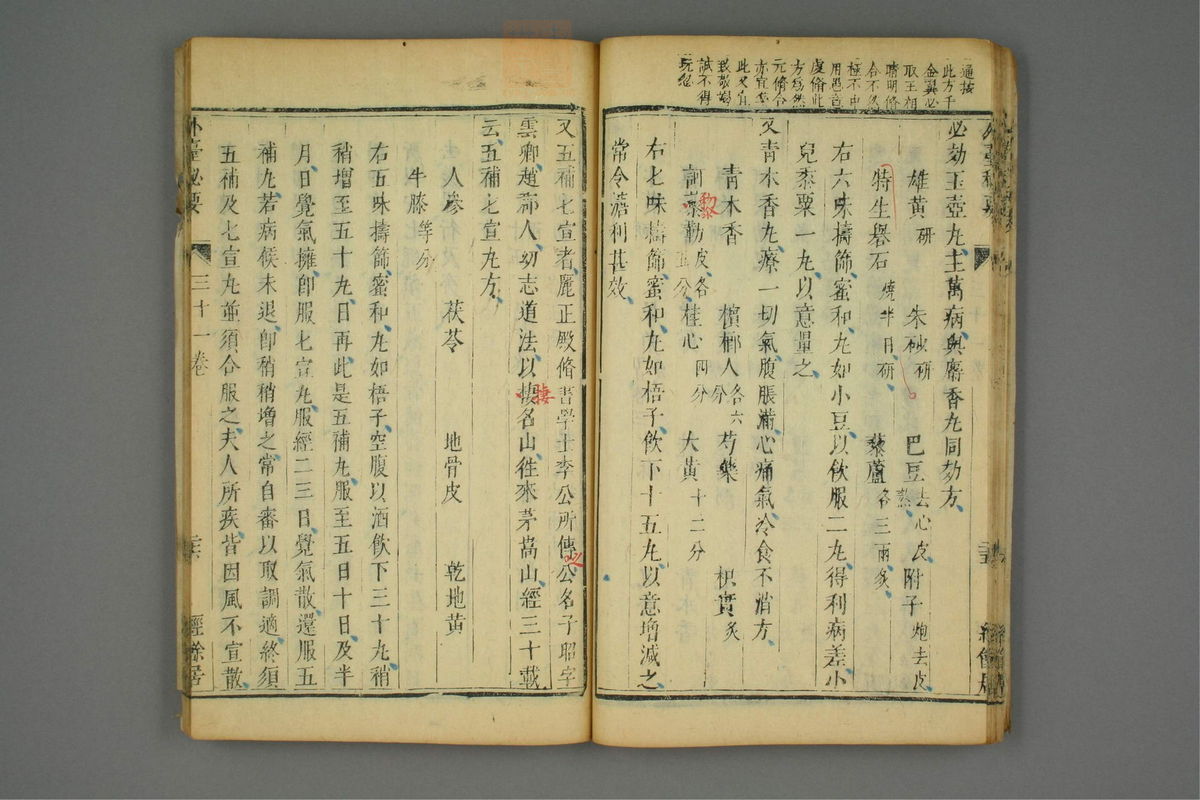 通按
此方千
金翼必
取王相
晴明脩
合不然
極不中
用邑言
虔脩此
方爲然
元脩合
亦宜
此又宜
致敬
誠不得
玩忽
必効玉壺丸主萬病與麝香丸同効方
雄黃研 朱砂研 巴豆去心皮熬 附子炮去皮
特生礜石燒半日研 藜蘆各三兩炙
右六味擣篩蜜和丸如小豆以飲服二丸得利病差小
兒黍粟一丸以意量之
又青木香丸療一切氣腹脹滿心痛氣冷食不消方
青木香 檳榔人各六分 芍藥 枳實炙
訶黎勒皮各五分 桂心四分 大黃十二分
右七味擣篩蜜和丸如梧子飲下十五丸以意增減之
常令溏利甚效
外臺秘要 三十一卷 經餘居
又五補七宣者麗正殿脩書學士李公所傳公名子昭字
雲卿趙郡人幼志道法以棲名山往來茅嵩山經三十載
云五補七宣丸方
人參 茯苓 地骨皮 乾地黃
牛膝等分
右五味擣篩蜜和丸如梧子空腹以酒飲下三十丸稍
稍增至五十丸日再此是五補丸服至五日十日及半
月日覺氣擁卽服七宣丸服經二三日覺氣散還服五
補丸若病候未退卽稍稍增之常自審以取調適終須
五補及七宣丸並須合服之夫人所疾皆因風不宣散
外臺秘要 三十一卷 二六 經餘居